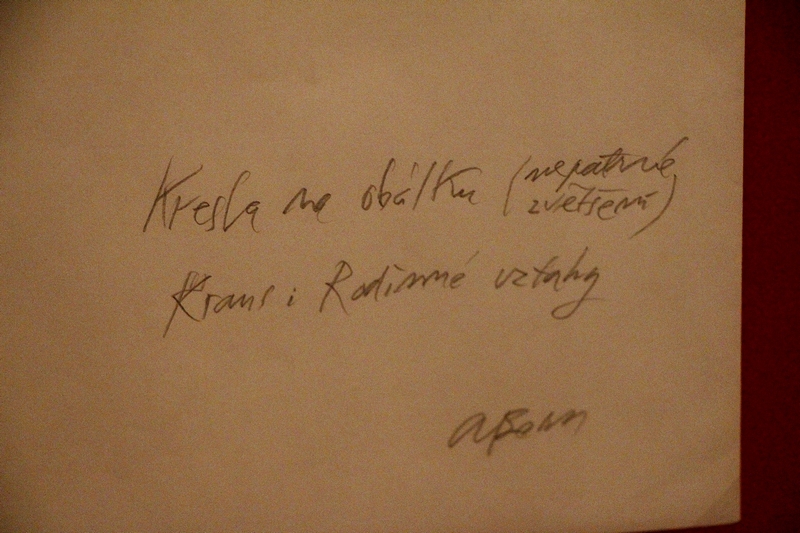 Kresba na obálku (nepatrné
zvětšení)
Kraus i Rodinné vztahy